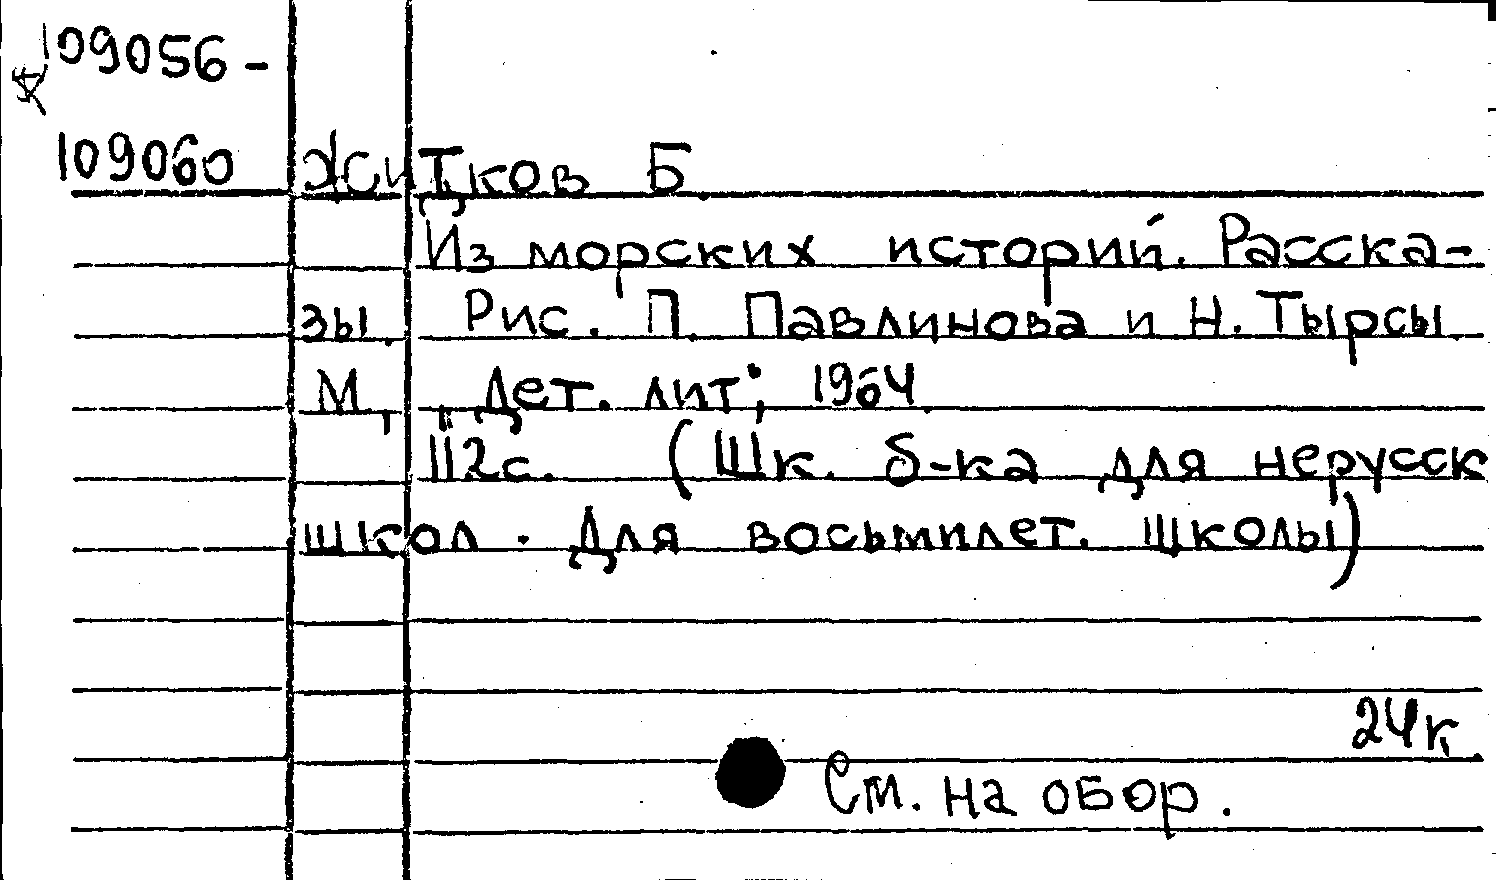 109056-
109060 Житков Б.
Из морских историй. Расска-
зы. Рис. П. Павлинова и Н. Тырсы.
М., „Дет. лит", 1964.
112с. (Шк. б-ка для нерусск
школ. Для восьмилет. школы)
24к.
См. на обор.